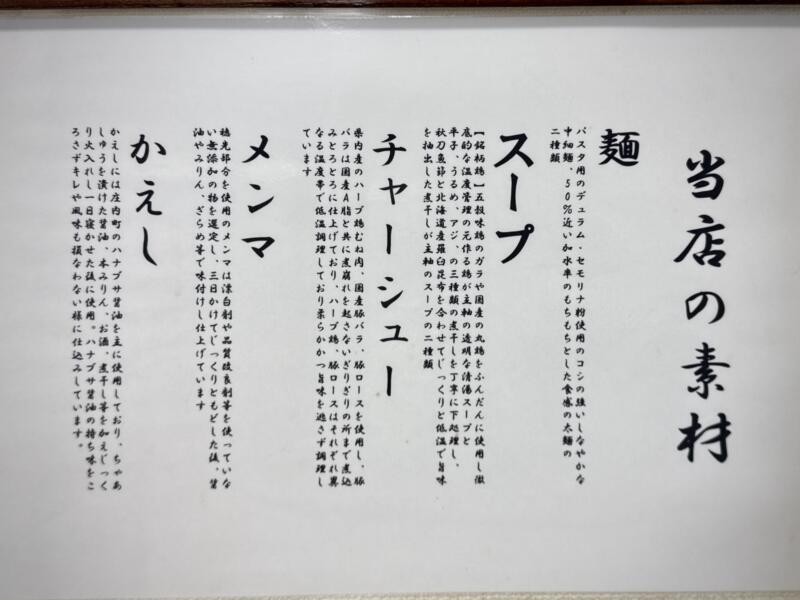 当店の素材
麺
パスタ用のデュラム・セモリナ粉使用のコシの強いしなやかな
中細麺、50%近い加水率のもちもちとした食感の太麺の
二種類
スープ
【銘柄鶏】五穀味鶏のガラや国産の丸鶏をふんだんに使用し徹
底的な温度管理の元作る鶏が主軸の透明な清湯スープと
平子、うるめ、アジ、の三種類の煮干しを丁寧に下処理し、
秋刀魚節と北海道産羅臼昆布を合わせてじっくりと低温で旨味
を抽出した煮干しが主軸のスープの二種類
チャーシュー
県内産のハーブ鶏むね肉、国産豚バラ、豚ロースを使用し、豚
バラは国産A脂と共に煮崩れを起さないぎりぎりの所まで煮込
みとろとろに仕上げており、ハーブ鶏、豚ロースはそれぞれ異
なる温度帯で低温調理しており柔らかかつ旨味を逃さず調理し
ています
メンマ
穂先部分を使用のメンマは漂白剤や品質改良剤等を使っていな
い無添加の物を選定し、三日かけてじっくりともどした後、醤
油やみりん、ざらめ等で味付けし仕上げています
かえし
かえしには庄内町のハナブサ醤油を主に使用しており、ちゃあ
しゅうを漬けた醤油、本みりん、お酒、煮干し等を加えじっく
り火入れし一日寝かせた後に使用。ハナブサ醤油の持ち味をこ
ろさずキレや風味も損なわない様に仕込みしています。